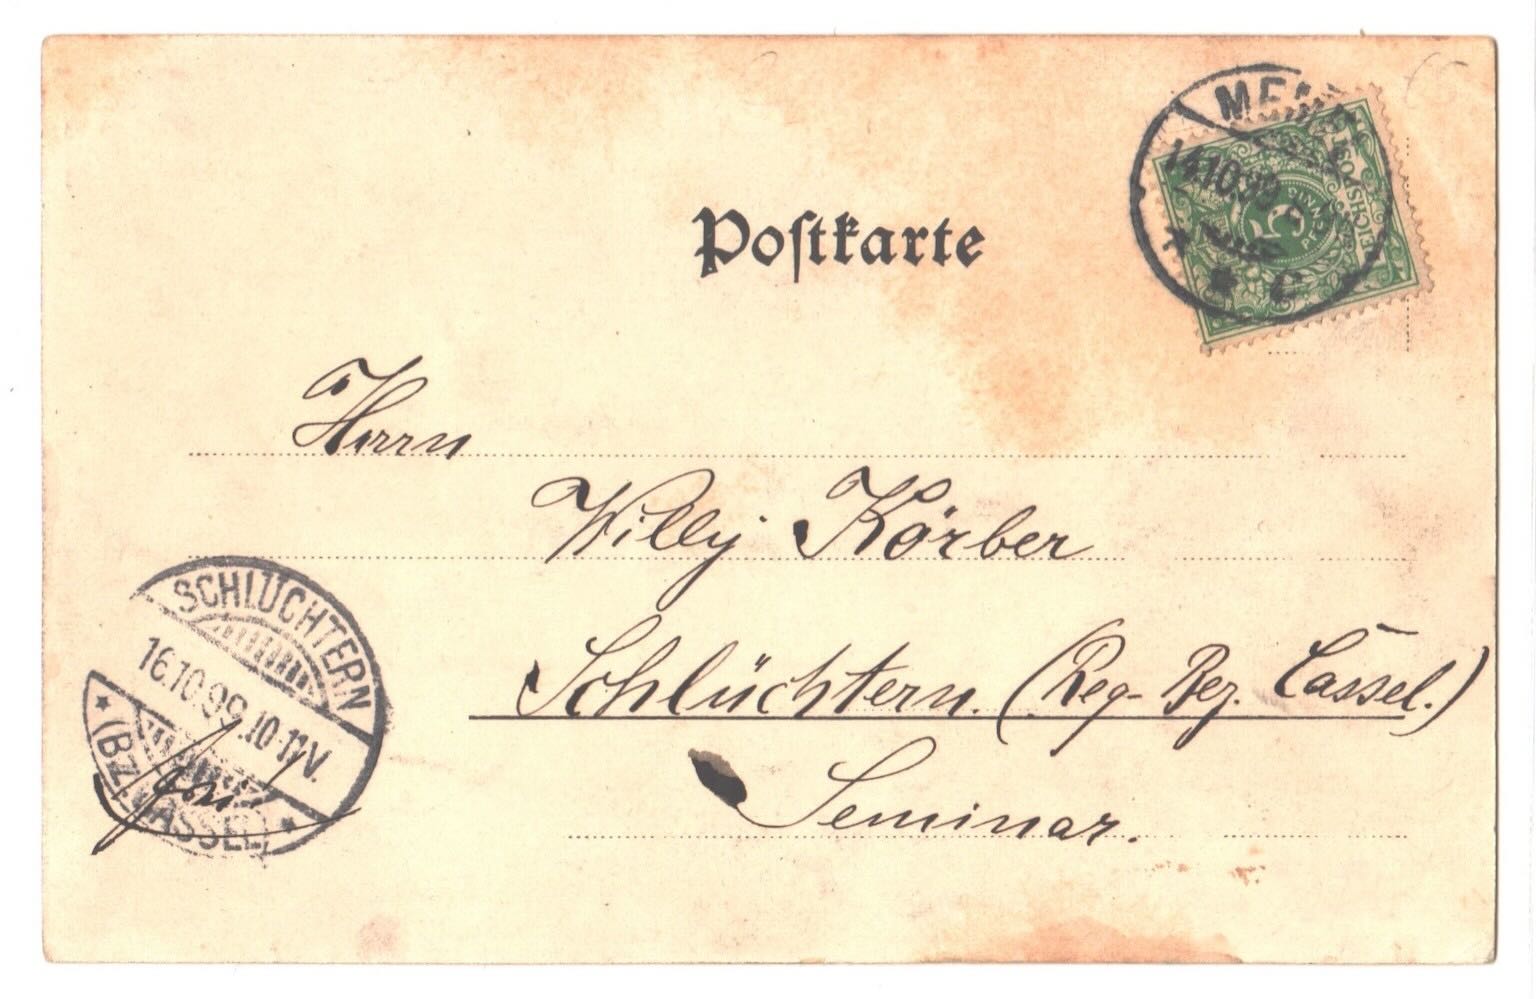 Postkarte
14.10.99
REICHSPOST
5
PFENNIG
C
Herrn
Willy Körber
Schlüchtern. (Reg. Bez. Cassel.)
Seminar.
SCHLÜCHTERN
16.10.99.10-11V.
(BZ. CASSEL)